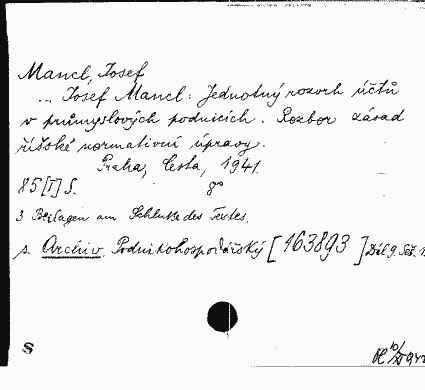 Mancl, Josef
... Josef Mancl: Jednotný rozvrh účtů
v průmyslových podnicích. Rozbor zásad
říšské normativní úpravy.
Praha, Cesta, 1941.
85 [1] S. 8°
3 Beilagen am Schluße des Textes.
s. Archiv Podnikohospodářský [163893] Díl 9. Seš. 1.
S